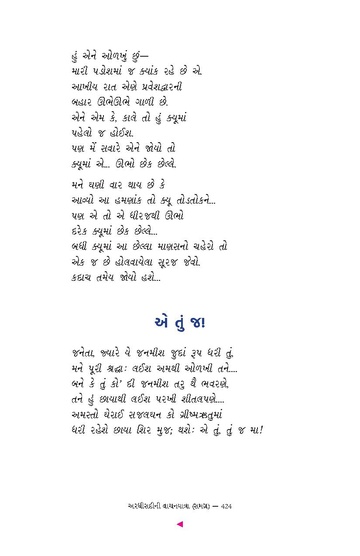 હું એને ઓળખું છું—
મારી પડોશમાં જ ક્યાંક રહે છે એ.
આખીય રાત એણે પ્રવેશદ્વારની
બહાર ઊભેઊભે ગાળી છે.
એને એમ કે, કાલે તો હું ક્યૂમાં
પહેલો જ હોઈશ.
પણ મેં સવારે એને જોયો તો
ક્યૂમાં એ... ઊભો છેક છેલ્લે.
મને ઘણી વાર થાય છે કે
આવ્યો આ હમણાંક તો ક્યૂ તોડતોકને...
પણ એ તો એ ધીરજથી ઊભો
દરેક ક્યૂમાં છેક છેલ્લે...
બધી ક્યૂમાં આ છેલ્લા માણસનો ચહેરો તો
એક જ છે હોલવાયેલા સૂરજ જેવો.
કદાચ તમેય જોયો હશે...
એ તું જ!
જનેતા, જ્યારે યે જનમીશ જુદાં રૂપ ધરી તું,
મને પૂરી શ્રદ્ધાઃ લઈશ અમથી ઓળખી તને....
બને કે તું કો' દી જનમીશ તરુ થૈ ભવરણે,
તને હું છાયાથી લઈશ પરખી શીતલપણે....
અમસ્તો ઘેરાઈ સજલઘન કો ગ્રીષ્મઋતુમાં
ધરી રહેશે છાયા શિર મુજ; થશેઃ એ તું, તું જ મા!
અરધીસદીની વાચનયાત્રા (સમગ્ર) — 424